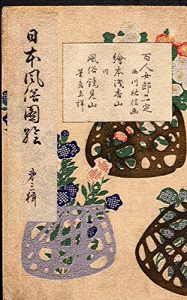 日本風俗圖繪
第三輯
百人女郎品定
西川祐信画
繪本淺香山
同
風俗鏡見山